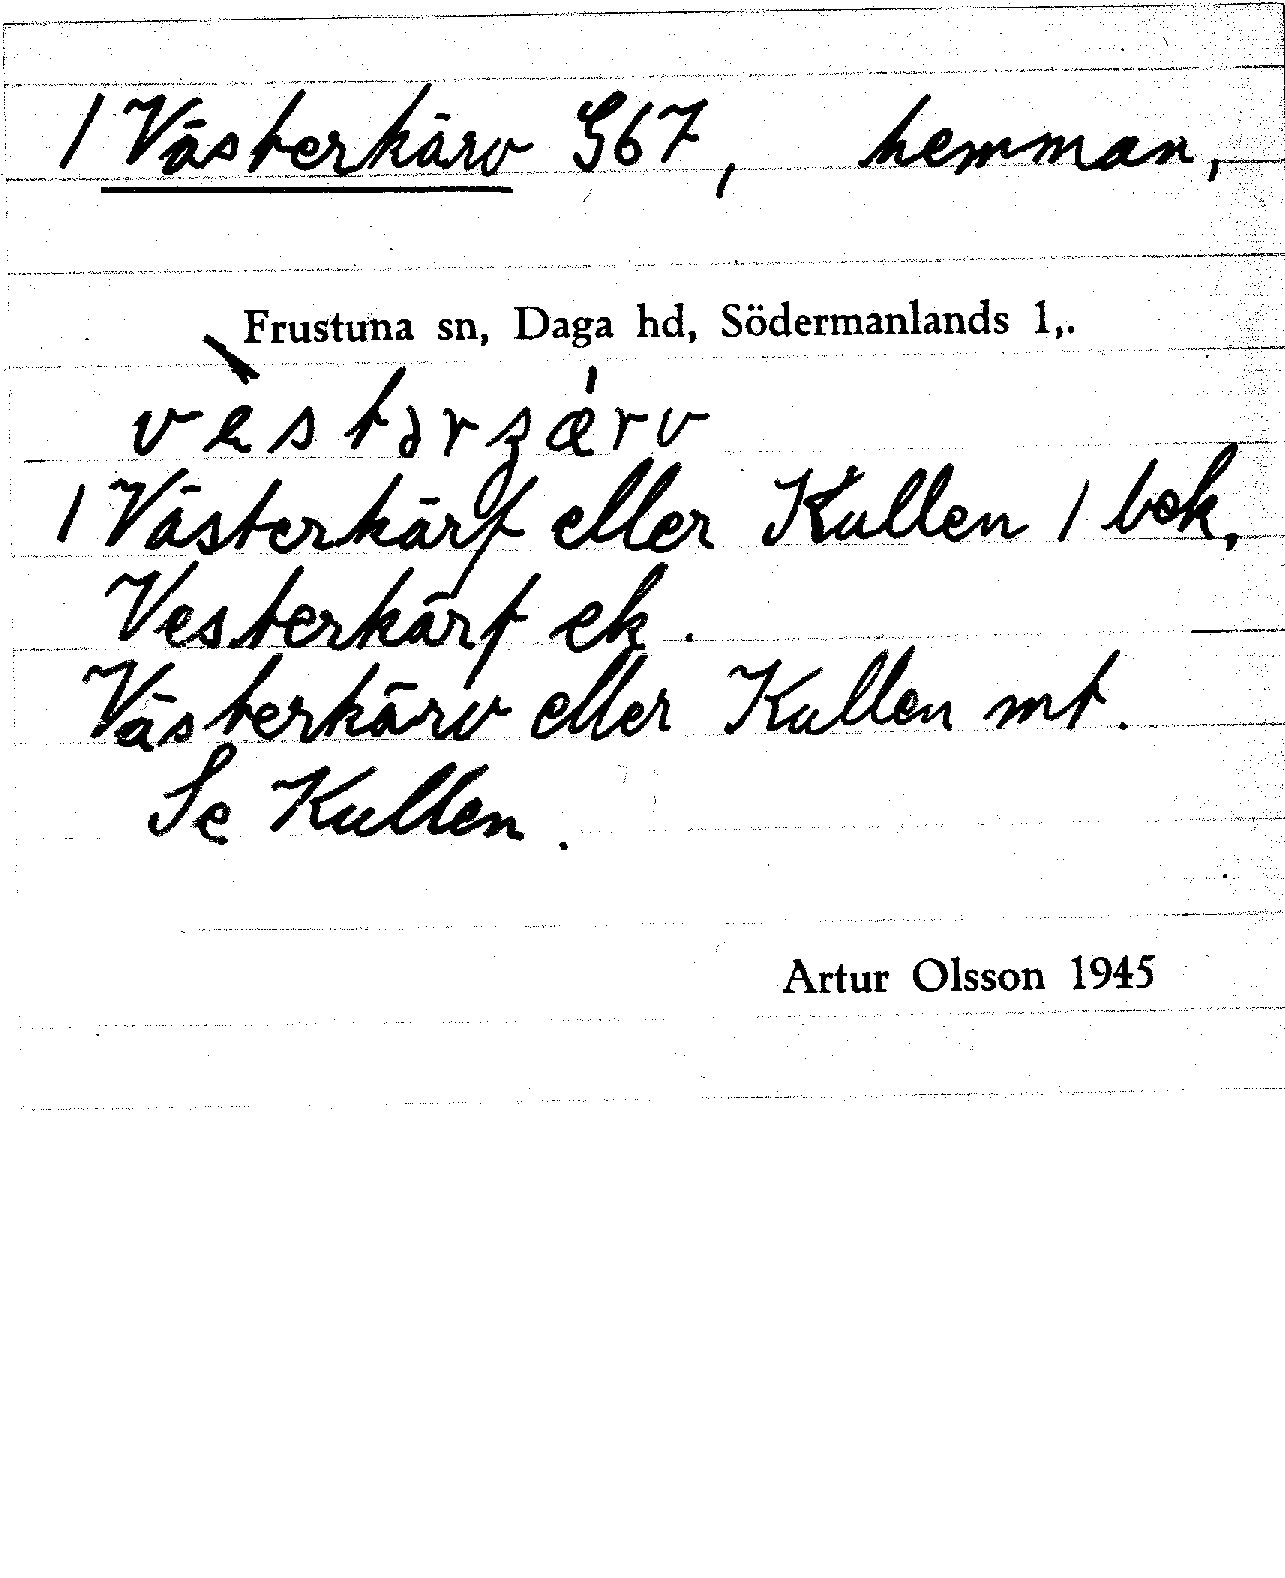 / Västerkärv G67, hemman,
Frustuna sn, Daga hd, Södermanlands l,.
vè̀stərʒǽrv
/ Västerkärf eller Kullen / bok,
Vesterkärf ek.
Västerkärv eller Kullen mt.
Se Kullen.
Artur Olsson 1945